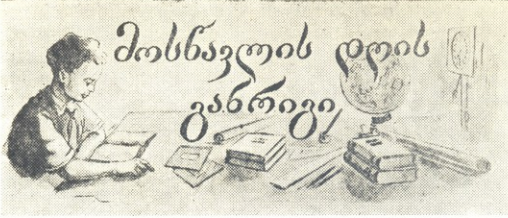 მოსწავლის დღის
განრიგი